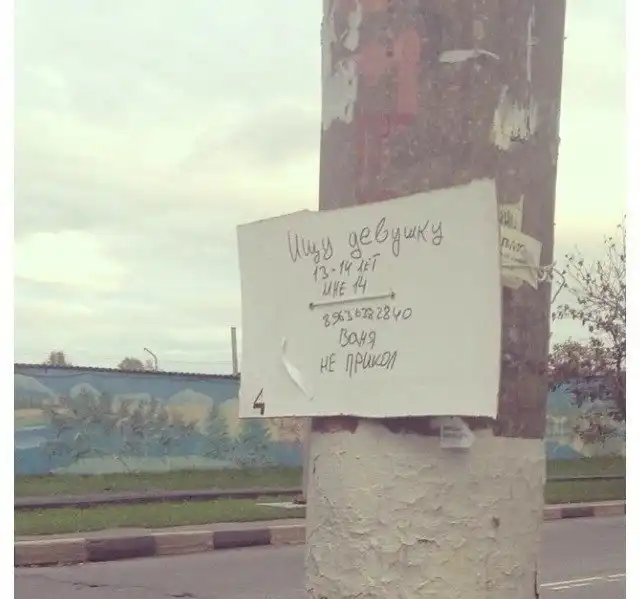 Ищу девушку
13-14 ЛЕТ
МНЕ 14
89636722840
Ваня
НЕ ПРИКОЛ
4